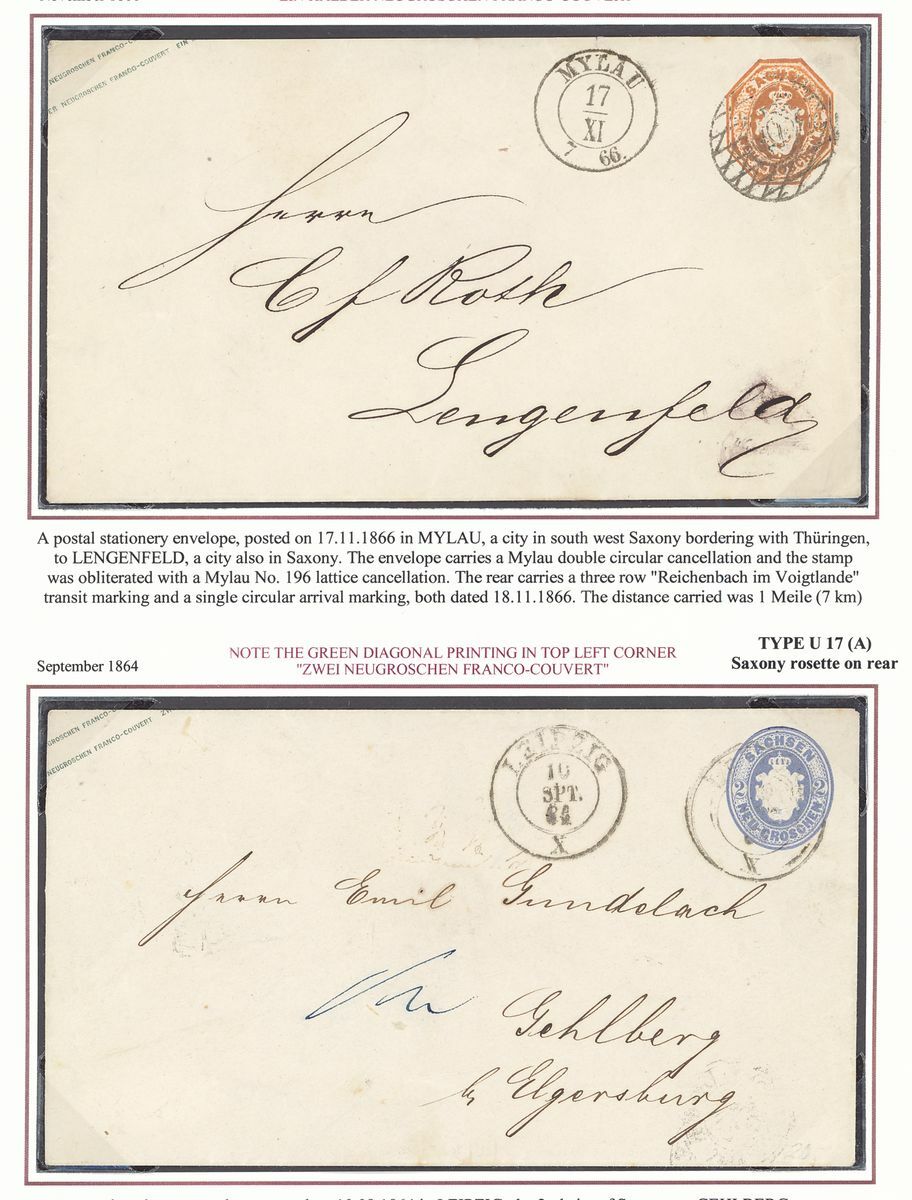 NEUGROSCHEN FRANCO-COUVERT EIN
NEUGROSCHEN FRANCO-COUVERT
MYLAU
17
XI
7 66.
SACHSEN
Herrn
C f Roth
Lengenfeld
A postal stationery envelope, posted on 17.11.1866 in MYLAU, a city in south west Saxony bordering with Thüringen,
to LENGENFELD, a city also in Saxony. The envelope carries a Mylau double circular cancellation and the stamp
was obliterated with a Mylau No. 196 lattice cancellation. The rear carries a three row "Reichenbach im Voigtlande"
transit marking and a single circular arrival marking, both dated 18.11.1866. The distance carried was 1 Meile (7 km)
September 1864
NOTE THE GREEN DIAGONAL PRINTING IN TOP LEFT CORNER
"ZWEI NEUGROSCHEN FRANCO-COUVERT"
TYPE U 17 (A)
Saxony rosette on rear
GROSCHEN FRANCO-COUVERT
NEUGROSCHEN FRANCO-COUVERT
LEIPZIG
10
SPT.
64
X
SACHSEN
2 2
NEU-GROSCHEN
X
Herrn Emil Gundelach
Gehlberg
b/ Elgersburg